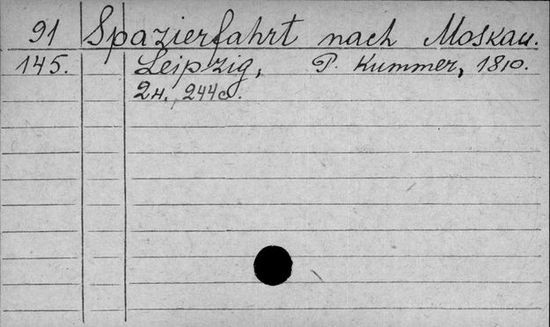 91 Spazierfahrt nach Moskau.
145. Leipzig, P. Kummer, 1810.
2н., 244с.